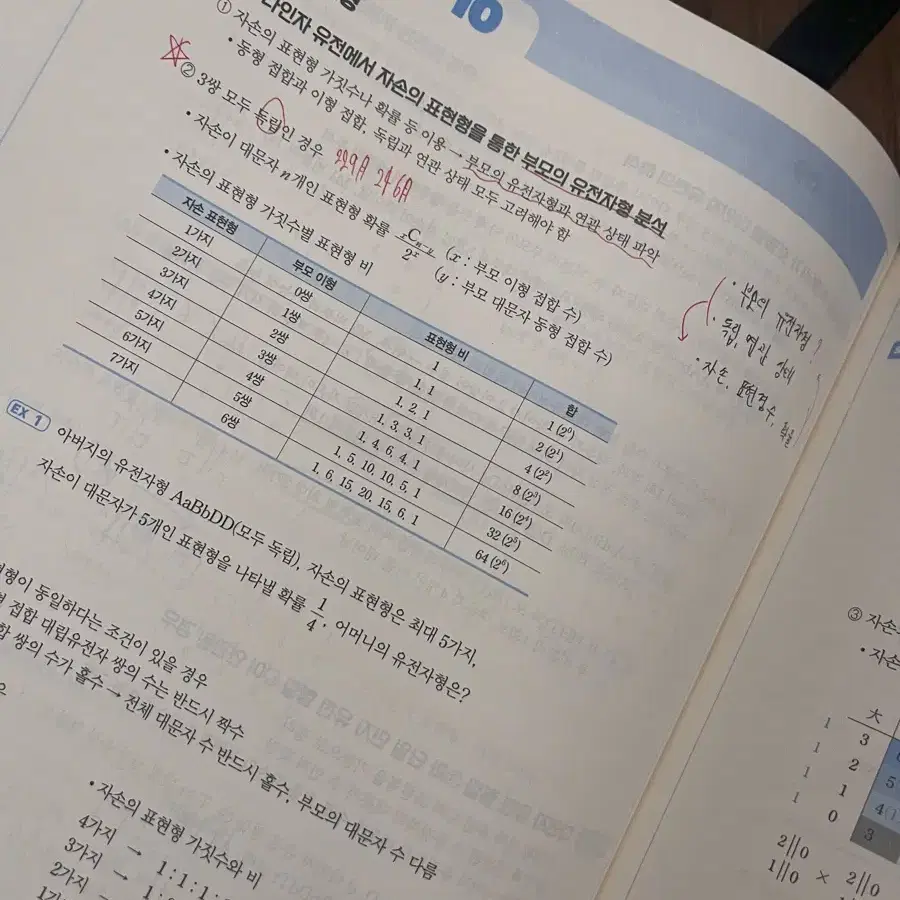 10
다인자 유전에서 자손의 표현형을 통한 부모의 유전자형 분석
① 자손의 표현형 가짓수나 확률 등 이용 → 부모의 유전자형과 연관 상태 파악
• 동형 접합과 이형 접합, 독립과 연관 상태 모두 고려해야 함
② 3쌍 모두 독립인 경우
• 자손이 대문자 n개인 표현형 확률 xCn-y / 2^x (x : 부모 이형 접합 수)
(y : 부모 대문자 동형 접합 수)
• 자손의 표현형 가짓수별 표현형 비
자손 표현형 부모 이형 표현형 비 합
1가지 0쌍 1 1 (2⁰)
2가지 1쌍 1, 1 2 (2¹)
3가지 2쌍 1, 2, 1 4 (2²)
4가지 3쌍 1, 3, 3, 1 8 (2³)
5가지 4쌍 1, 4, 6, 4, 1 16 (2⁴)
6가지 5쌍 1, 5, 10, 10, 5, 1 32 (2⁵)
7가지 6쌍 1, 6, 15, 20, 15, 6, 1 64 (2⁶)
• 부모의 유전자형
• 독립, 연관 상태
• 자손, 표현형수, 확률
EX 1 아버지의 유전자형 AaBbDD(모두 독립), 자손의 표현형은 최대 5가지,
자손이 대문자가 5개인 표현형을 나타낼 확률 1/4. 어머니의 유전자형은?
동일하다는 조건이 있을 경우
접합 대립유전자 쌍의 수는 반드시 짝수
쌍의 수가 홀수 → 전체 대문자 수 반드시 홀수, 부모의 대문자 수 다름
• 자손의 표현형 가짓수와 비
4가지 → 1 : 1 : 1
3가지 →
2가지 →
③ 자손
• 자손
大
1 3
1 2
1 1
1 0
5
3
2||0 × 2||0
1||0